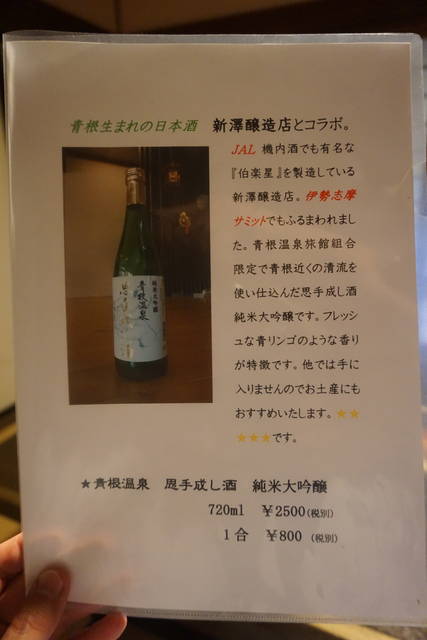 青根生まれの日本酒　新澤醸造店とコラボ。
JAL 機内酒でも有名な
『伯楽星』を製造している
新澤醸造店。伊勢志摩
サミットでもふるまわれまし
た。青根温泉旅館組合
限定で青根近くの清流を
使い仕込んだ恩手成し酒
純米大吟醸です。フレッシ
ュな青リンゴのような香り
が特徴です。他では手に
入りませんのでお土産にも
おすすめいたします。★★
★★★です。
純米大吟醸
青根温泉
★青根温泉　恩手成し酒　純米大吟醸
720ml　￥2500(税別)
1合　￥800 (税別)